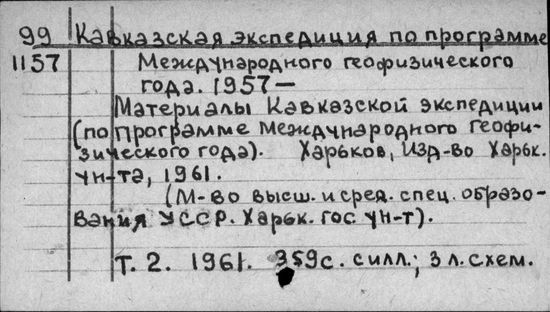 99 Кавказская экспедиция по программе
1157 Международного геофизического
года. 1957—
Материалы Кавказской экспедиции
(по программе Международного геофи-
зического года). Харьков, Изд-во Харьк.
ун-та, 1961.
(М-во высш. и сред. спец. образо-
вания УССР. Харьк. гос. ун-т).
Т. 2. 1961. 359с. с илл.; 3 л. схем.